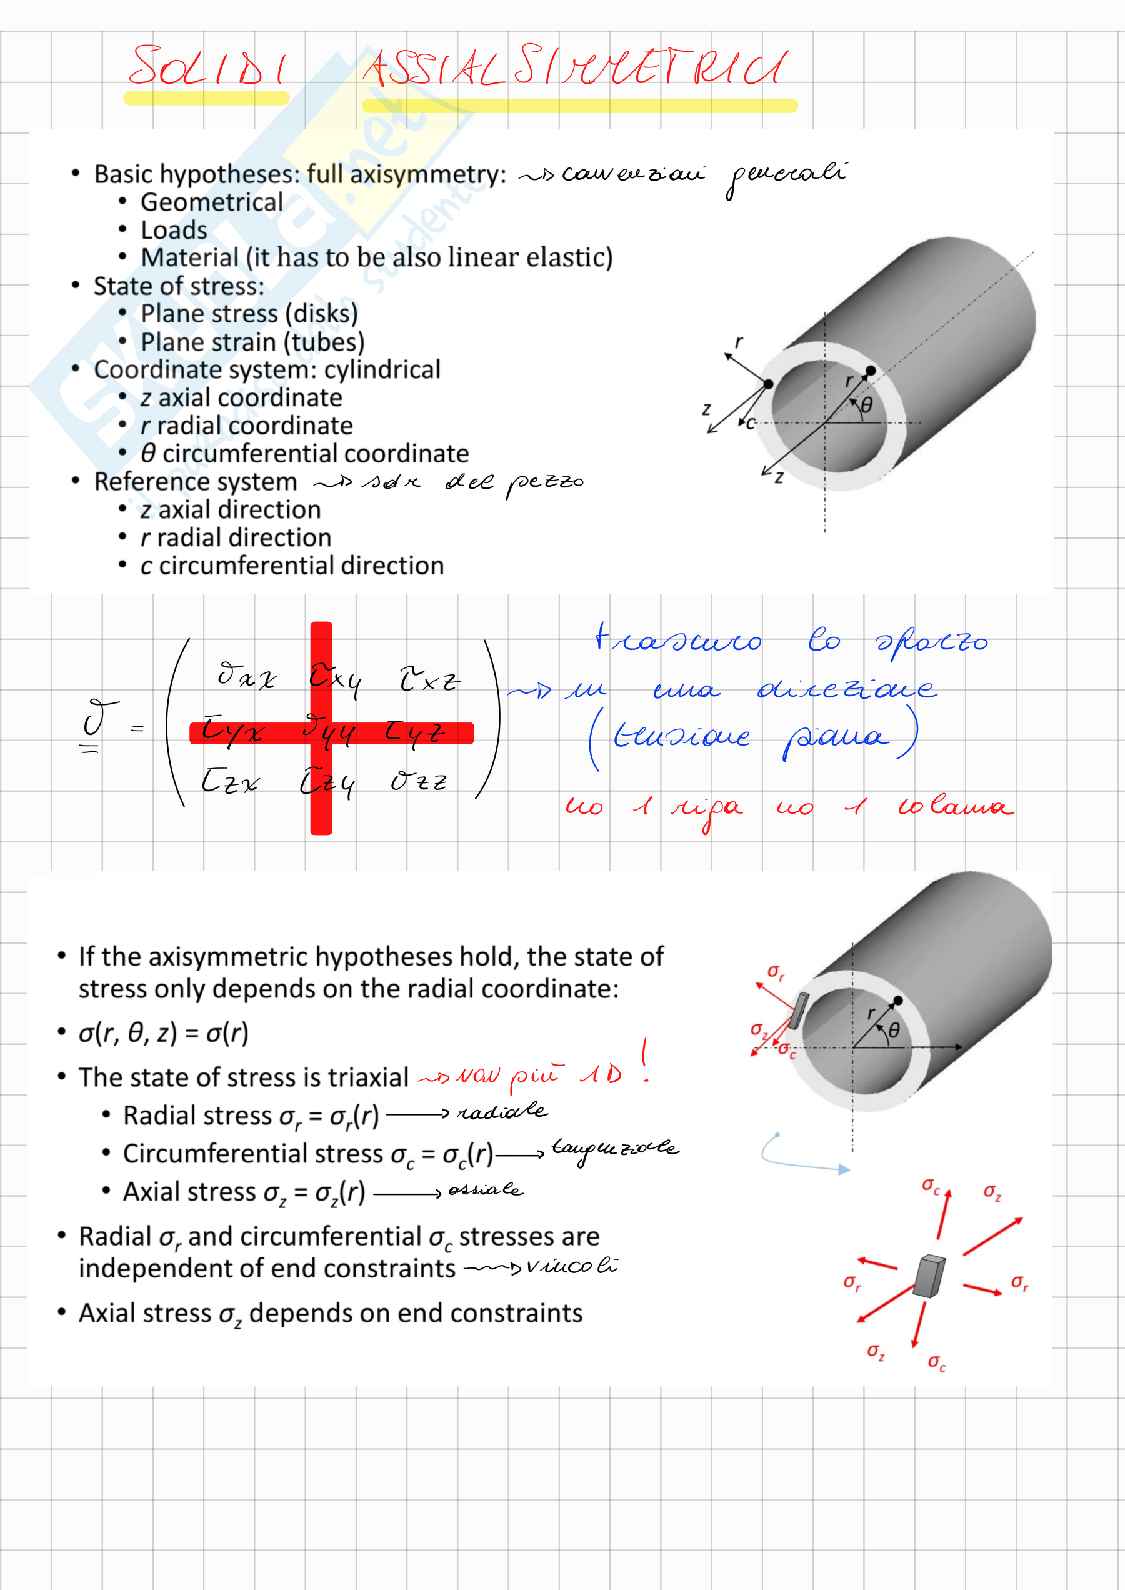 SOLIDI ASSIALSIMMETRICI
• Basic hypotheses: full axisymmetry: ~> convenzioni generali
• Geometrical
• Loads
• Material (it has to be also linear elastic)
• State of stress:
• Plane stress (disks)
• Plane strain (tubes)
• Coordinate system: cylindrical
• z axial coordinate
• r radial coordinate
• θ circumferential coordinate
• Reference system ~> sdr del pezzo
• z axial direction
• r radial direction
• c circumferential direction
r
r
θ
z
c
z
trascuro lo sforzo
σxx τxy τxz ~> in una direzione
σ = τyx σyy τyz (tensione piana)
τzx τzy σzz
no 1 riga no 1 colonna
• If the axisymmetric hypotheses hold, the state of
stress only depends on the radial coordinate:
• σ(r, θ, z) = σ(r)
• The state of stress is triaxial ~> NON più 1D !
• Radial stress σr = σr(r) → radiale
• Circumferential stress σc = σc(r) → tangenziale
• Axial stress σz = σz(r) → assiale
• Radial σr and circumferential σc stresses are
independent of end constraints ~> vincoli
• Axial stress σz depends on end constraints
σr
r
θ
σz
σc
σc σz
σr σr
σz σc
skuola.net